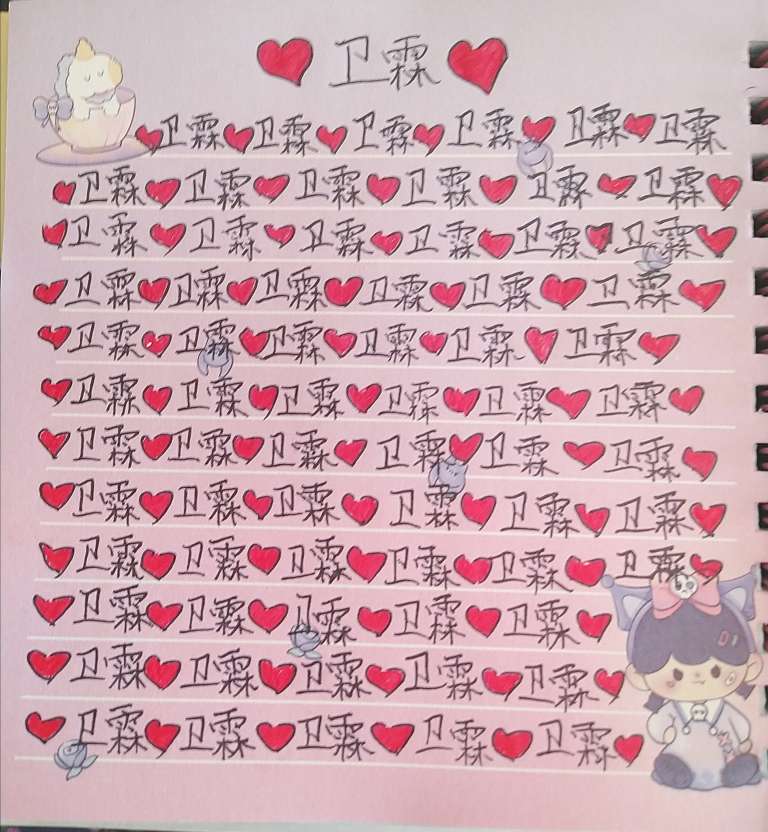 卫霖
卫霖 卫霖 卫霖 卫霖 卫霖 卫霖
卫霖 卫霖 卫霖 卫霖 卫霖 卫霖
卫霖 卫霖 卫霖 卫霖 卫霖 卫霖
卫霖 卫霖 卫霖 卫霖 卫霖 卫霖
卫霖 卫霖 卫霖 卫霖 卫霖 卫霖
卫霖 卫霖 卫霖 卫霖 卫霖 卫霖
卫霖 卫霖 卫霖 卫霖 卫霖 卫霖
卫霖 卫霖 卫霖 卫霖 卫霖 卫霖
卫霖 卫霖 卫霖 卫霖 卫霖 卫霖
卫霖 卫霖 卫霖 卫霖 卫霖
卫霖 卫霖 卫霖 卫霖 卫霖
卫霖 卫霖 卫霖 卫霖 卫霖